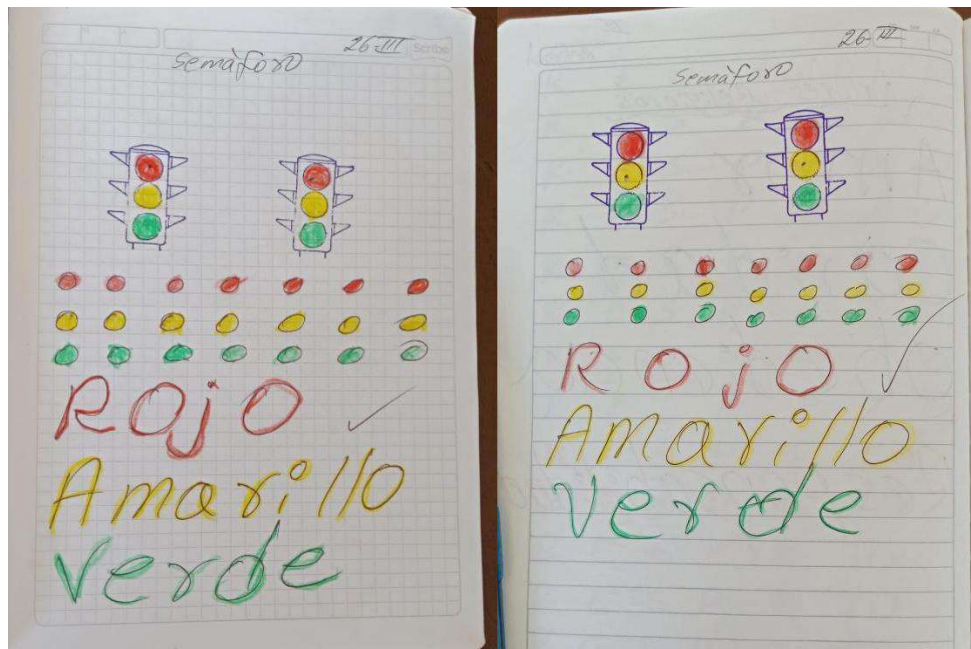 26-III Scribe
Semáforo
ROjO
Amarillo
Verde
26-III
Semáforo
ROjO
Amarillo
Verde